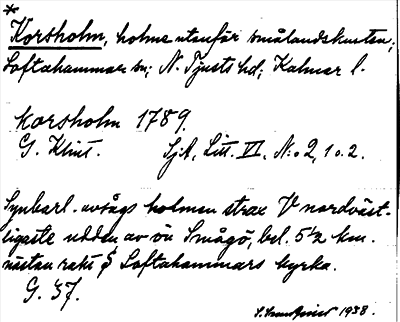 *
Korsholm, holme utanför smålandskusten;
Loftahammar sn; N. Tjusts hd; Kalmar l.
Korsholm 1789.
G. Klint. Sjk, Litt. VI. N:o 2, 1 o. 2.
Synbarl. avsågs holmen strax V nordväst-
ligaste udden av ön Smågö, bel. 5½ km.
nästan rakt S Loftahammars kyrka.
G. 37.
1938.